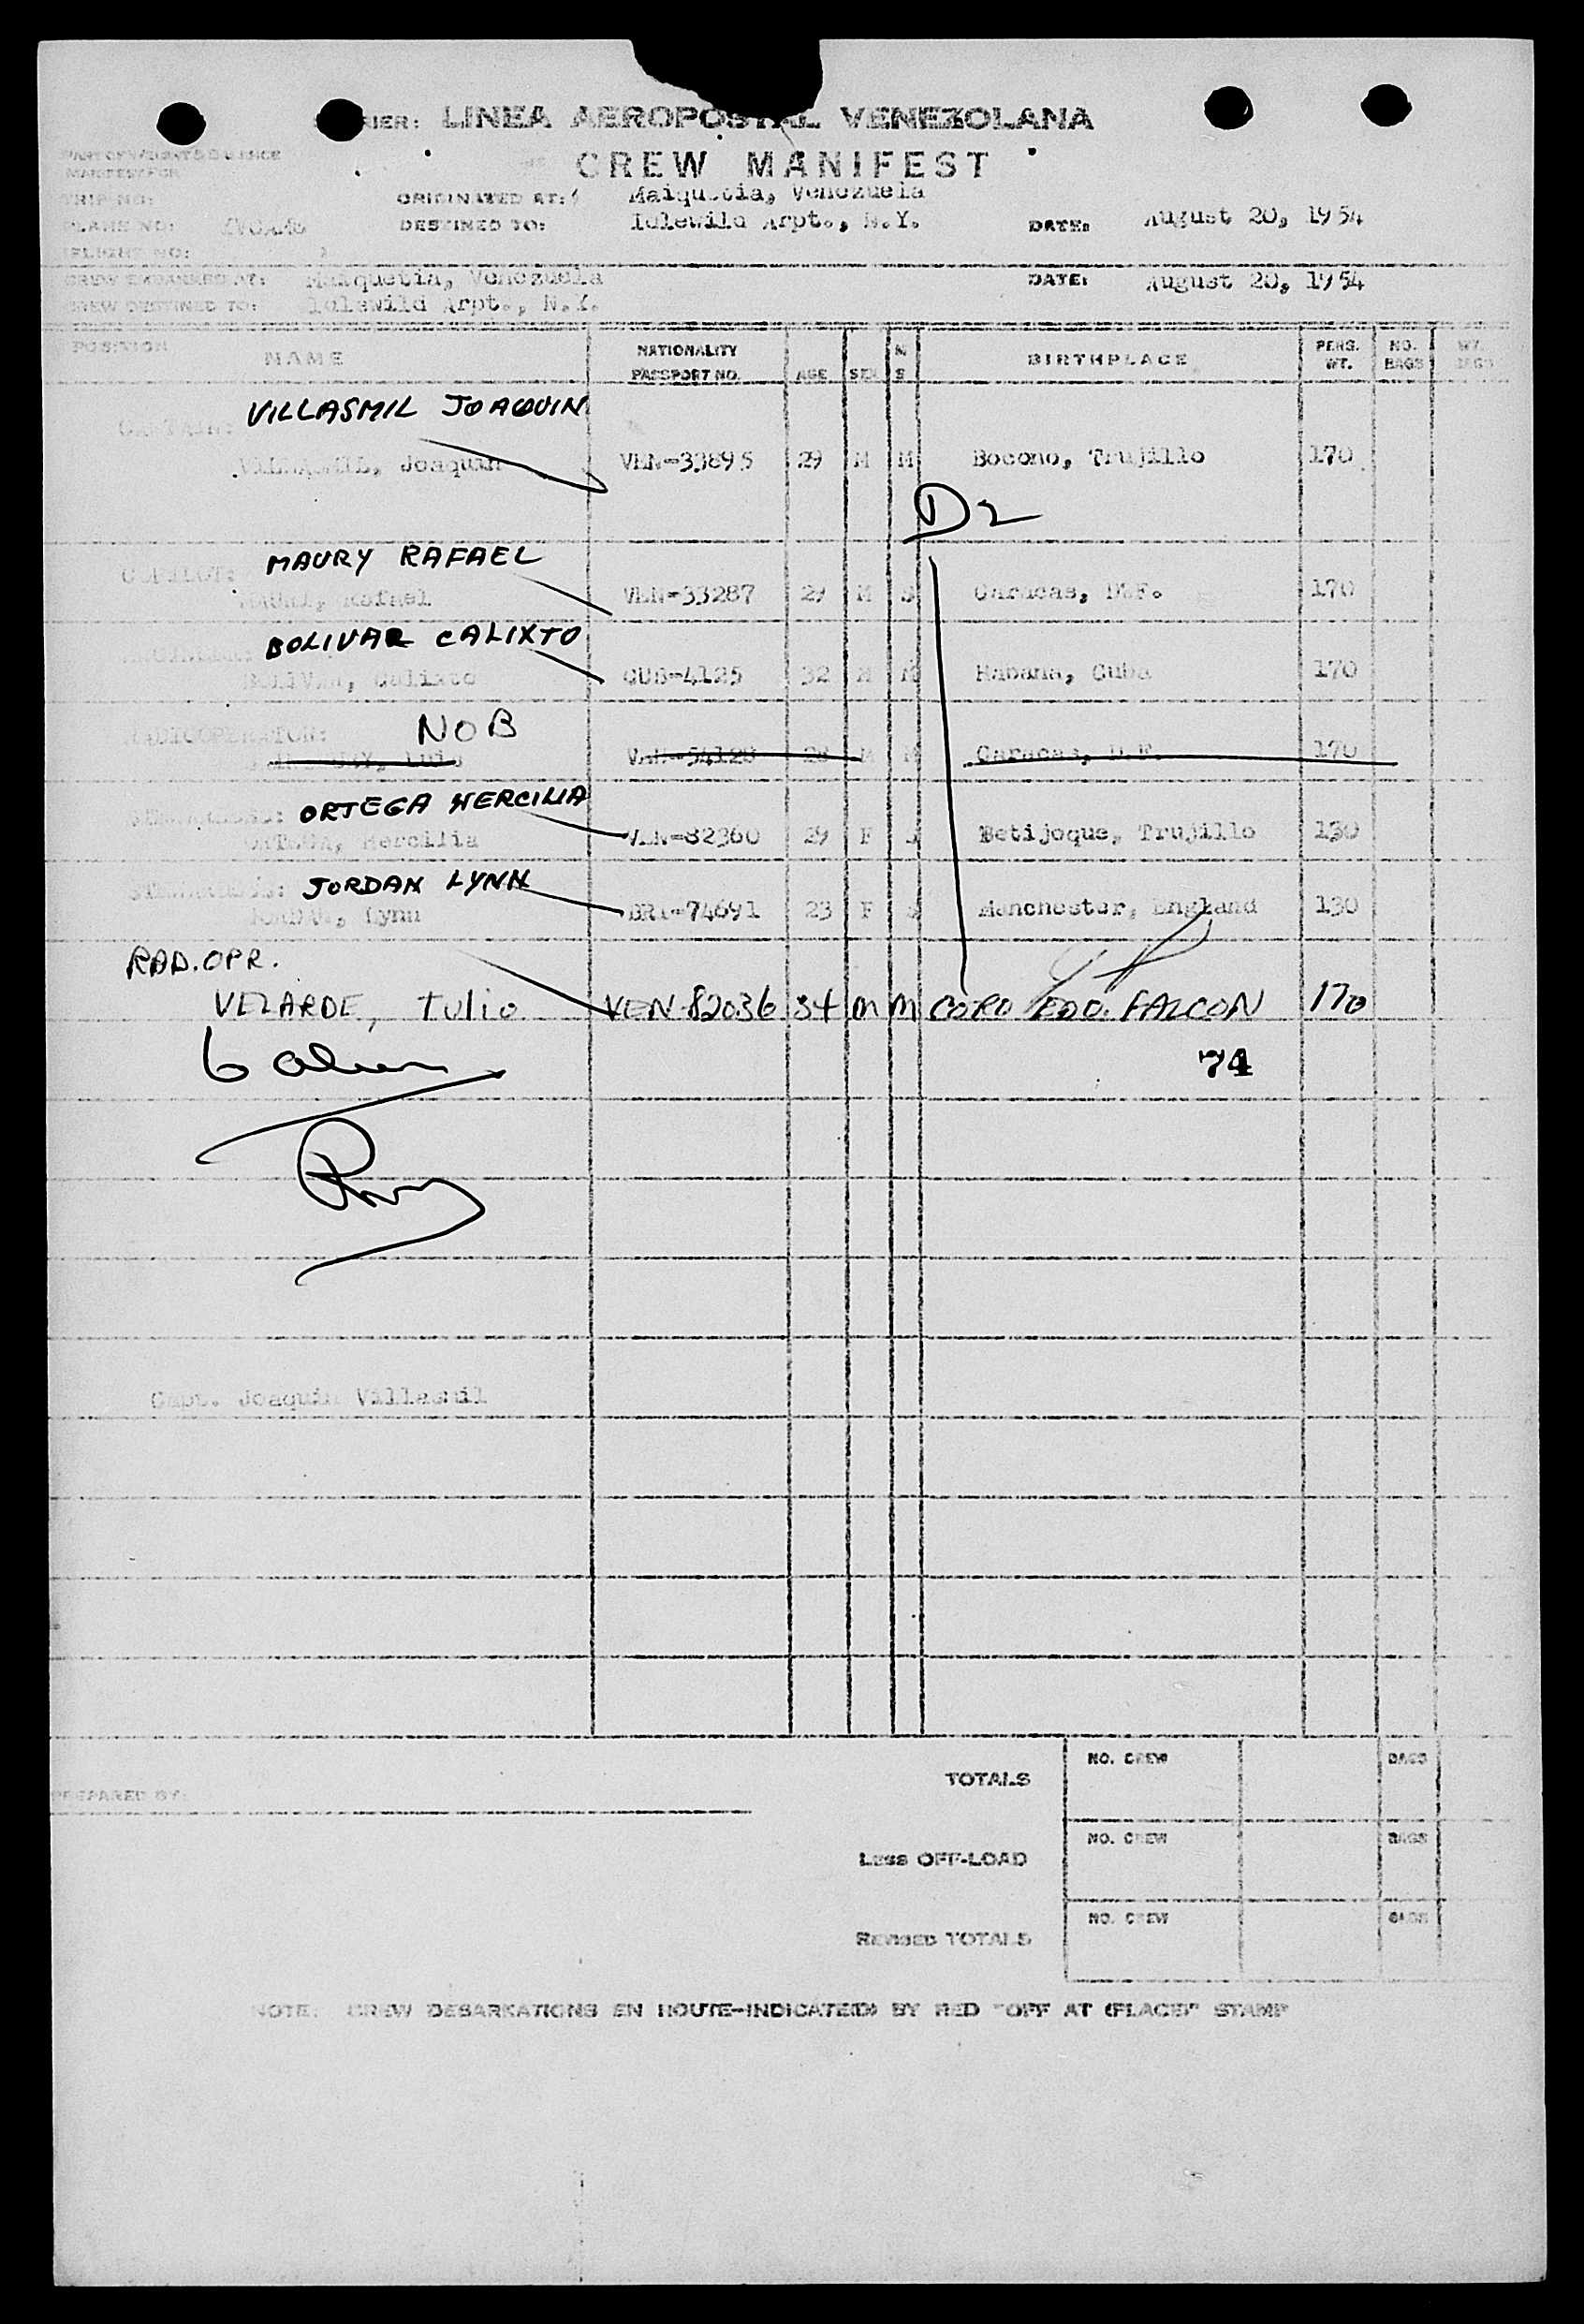 CARRIER: LINEA AEROPOSTAL VENEZOLANA
CREW MANIFEST
MANIFEST FOR
TRIP NO: ORIGINATED AT: Maiquetia, Venezuela
PLANE NO: DESTINED TO: Idlewild Arpt., N.Y. DATE: August 20, 1954
FLIGHT NO:
CREW EMBARKED AT: Maiquetia, Venezuela DATE: August 20, 1954
CREW DESTINED TO: Idlewild Arpt., N.Y.
POSITION NAME NATIONALITY PASSPORT NO. AGE SEX M S BIRTHPLACE PERS. WT. NO. BAGS WT. BAGS
VILLASMIL JOAQUIN
CAPTAIN:
VILLASMIL, Joaquin VEN-33895 29 M M Bocono, Trujillo 170
D2
MAURY RAFAEL
COPILOT:
MAURY, Rafael VEN-33287 29 M S Caracas, D.F. 170
BOLIVAR CALIXTO
ENGINEER:
BOLIVAR, Calixto CUB-4125 32 M M Habana, Cuba 170
NOB
RADIOOPERATOR:
Luis VEN-54128 28 M M Caracas, D.F. 170
ORTEGA HERCILIA
STEWARDESS:
ORTEGA, Hercilia VEN-82360 29 F S Betijoque, Trujillo 130
JORDAN LYNN
STEWARDESS:
JORDAN, Lynn BRI-74691 23 F S Manchester, England 130
RAD.OPR.
VELARDE, Tulio VEN-82036 34 M M CORO EDO. FALCON 170
6
74
Capt. Joaquin Villasmil
TOTALS NO. CREW BAGS
PREPARED BY:
Less OFF-LOAD NO. CREW BAGS
REVISED TOTALS NO. CREW BAGS
NOTE: CREW DEBARKATIONS EN ROUTE-INDICATED BY RED "OFF AT (PLACE)" STAMP